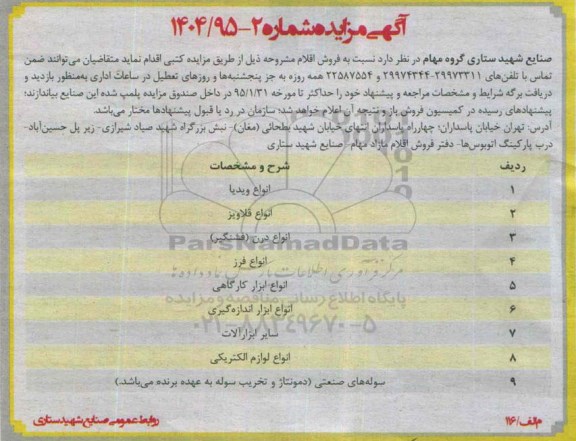 آگهی مزایده شماره ۲-۱۴۰۴/۹۵
صنایع شهید ستاری گروه مهام در نظر دارد نسبت به فروش اقلام مشروحه ذیل از طریق مزایده کتبی اقدام نماید متقاضیان می‌توانند ضمن
تماس با تلفن‌های ۲۹۹۷۳۳۱۱-۲۹۹۷۴۳۴۴ و ۲۲۵۸۷۵۵۴ همه روزه به جز پنجشنبه‌ها و روزهای تعطیل در ساعات اداری به‌منظور بازدید و
دریافت برگه شرایط و مشخصات مراجعه و پیشنهاد خود را حداکثر تا مورخه ۹۵/۱/۳۱ در داخل صندوق مزایده پلمپ شده این صنایع بیاندازند؛
پیشنهادهای رسیده در کمیسیون فروش باز و نتیجه آن اعلام خواهد شد؛ سازمان در رد یا قبول پیشنهادها مختار می‌باشد.
آدرس: تهران خیابان پاسداران؛ چهارراه پاسداران انتهای خیابان شهید بطحائی (مغان)- نبش بزرگراه شهید صیاد شیرازی- زیر پل حسین‌آباد-
درب پارکینگ اتوبوس‌ها- دفتر فروش اقلام مازاد مهام- صنایع شهید ستاری
ردیف شرح و مشخصات
۱ انواع ویدیا
۲ انواع قلاویز
۳ انواع درن (فشنگیر)
۴ انواع فرز
۵ انواع ابزار کارگاهی
۶ انواع ابزار اندازه‌گیری
۷ سایر ابزارآلات
۸ انواع لوازم الکتریکی
۹ سوله‌های صنعتی (دمونتاژ و تخریب سوله به عهده برنده می‌باشد.)
م‌الف/۱۱۶ روابط عمومی صنایع شهید ستاری
ParsNamadData
مرکز فرآوری اطلاعات پارس نماد داده‌ها
پایگاه اطلاع رسانی مناقصه و مزایده
۰۲۱-۸۸۳۴۹۶۷۰-۵